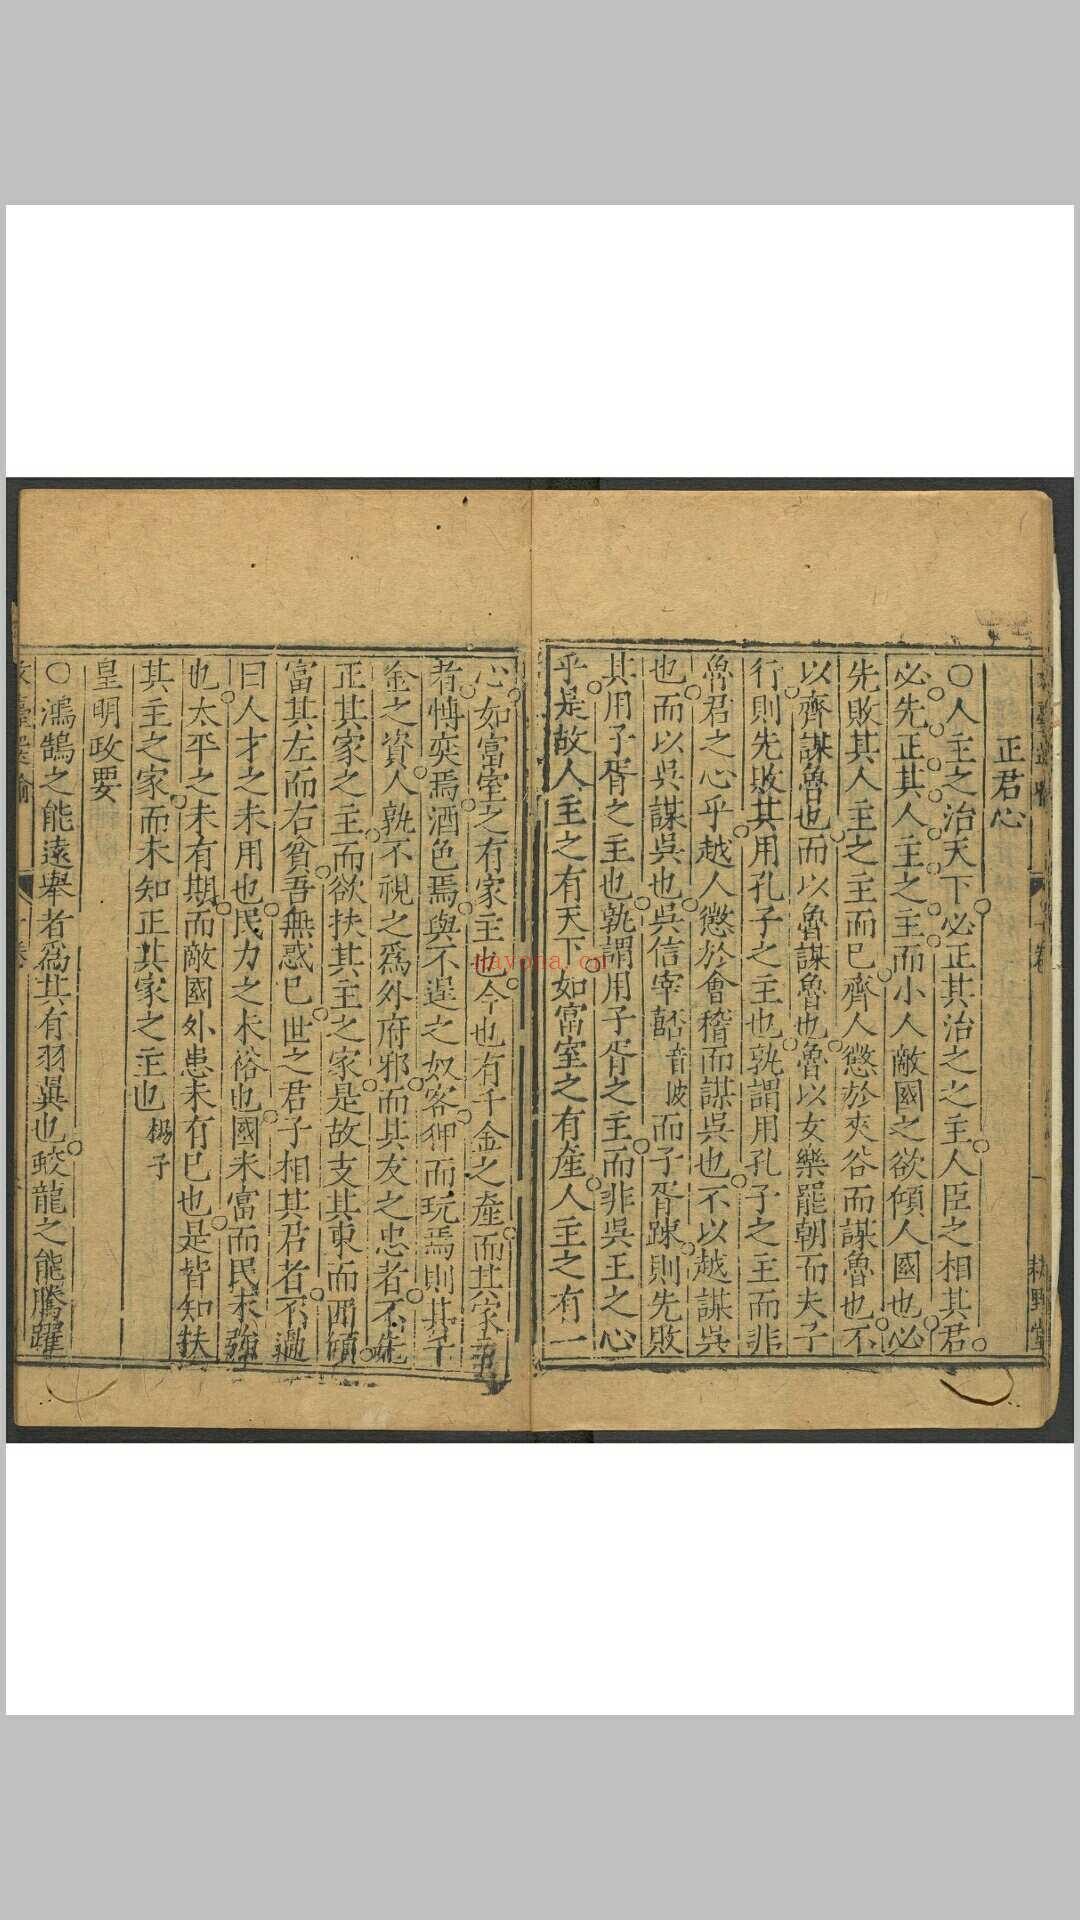 正君心
○人主之治天下必正其治之之主人臣之相其君
必先正其人主之主而小人敵國之欲傾人國也必
先敗其人主之主而已齊人懲於夾谷而謀魯也不
以齊謀魯也而以魯謀魯也魯以女樂罷朝而夫子
行則先敗其用孔子之主也孰謂用孔子之主而非
魯君之心乎越人懲於會稽而謀吳也不以越謀吳
也而以吳謀吳也吳信宰嚭音坡而子胥踈則先敗
其用子胥之主也孰謂用子胥之主而非吳王之心
乎是故人主之有天下如富室之有產人主之有一
心如富室之有家主也今也有千金之產而其家主
者愽奕焉酒色焉與不逞之奴客狎而玩焉則其千
金之資人孰不視之為外府邪而其友之忠者不先
正其家之主而欲扶其主之家是故支其東而西傾
富其左而右貧吾無惑已世之君子相其君者不過
曰人才之未用也民力之未裕也國未富而民未強
也太平之未有期而敵國外患未有已也是皆知扶
其主之家而未知正其家之主也 楊子
皇明政要
○鴻鵠之能遠舉者為其有羽翼也蛟龍之能騰躍
卷
耕野堂
nayona.cn